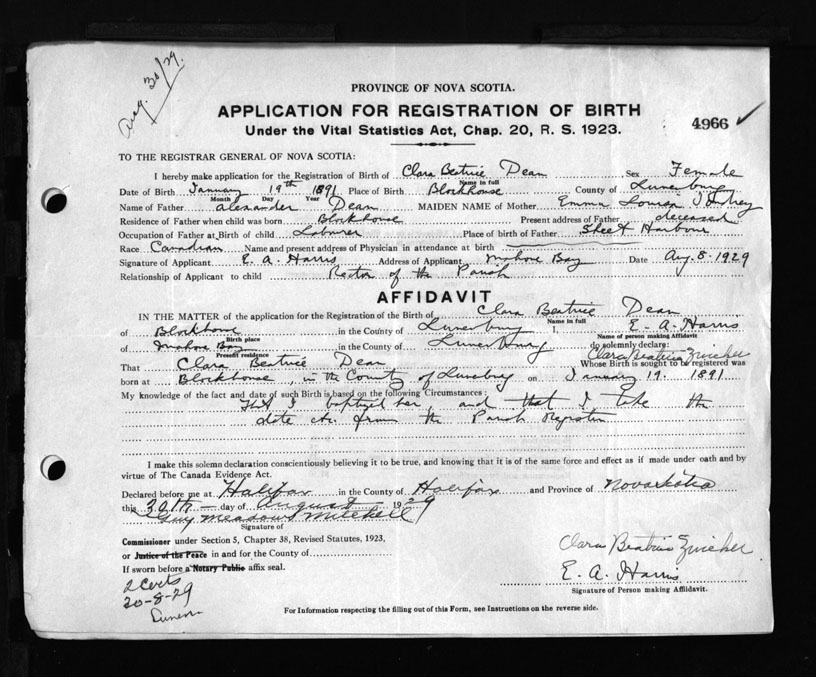 Aug. 30/29.
PROVINCE OF NOVA SCOTIA.
APPLICATION FOR REGISTRATION OF BIRTH
4966 ✓
Under the Vital Statistics Act, Chap. 20, R. S. 1923.
TO THE REGISTRAR GENERAL OF NOVA SCOTIA:
I hereby make application for the Registration of Birth of Clara Beatrice Dean Sex Female
Name in full
Date of Birth January 19th 1891 Place of Birth Blockhouse County of Lunenburg
Month Day Year
Name of Father Alexander Dean MAIDEN NAME of Mother Emma Louisa
Residence of Father when child was born Blockhouse Present address of Father deceased
Occupation of Father at Birth of child Laborer Place of birth of Father Sheet Harbour
Race Canadian Name and present address of Physician in attendance at birth
Signature of Applicant E. A. Harris Address of Applicant Mahone Bay Date Aug. 8. 1929
Relationship of Applicant to child Rector of the Parish
AFFIDAVIT
IN THE MATTER of the application for the Registration of the Birth of Clara Beatrice Dean
Name in full
of Blockhouse in the County of Lunenburg E. A. Harris
Birth place Name of person making Affidavit
of Mahone Bay in the County of Lunenburg do solemnly declare:
Present residence Clara Beatrice Zwicker
That Clara Beatrice Dean Whose Birth is sought to be registered was
born at Blockhouse, in the County of Lunenburg on January 19. 1891
My knowledge of the fact and date of such Birth is based on the following Circumstances:
That I baptized her, and that I take the
date etc. from the Parish Register
I make this solemn declaration conscientiously believing it to be true, and knowing that it is of the same force and effect as if made under oath and by
virtue of The Canada Evidence Act.
Declared before me at Halifax in the County of Halifax and Province of Nova Scotia
this 30th day of August 1929
Guy Meadows Mitchell
Signature of
Commissioner under Section 5, Chapter 38, Revised Statutes, 1923,
or Justice of the Peace in and for the County of
If sworn before a Notary Public affix seal.
Clara Beatrice Zwicker
E. A. Harris
Signature of Person making Affidavit.
2 Certs
30-8-29
For Information respecting the filling out of this Form, see Instructions on the reverse side.